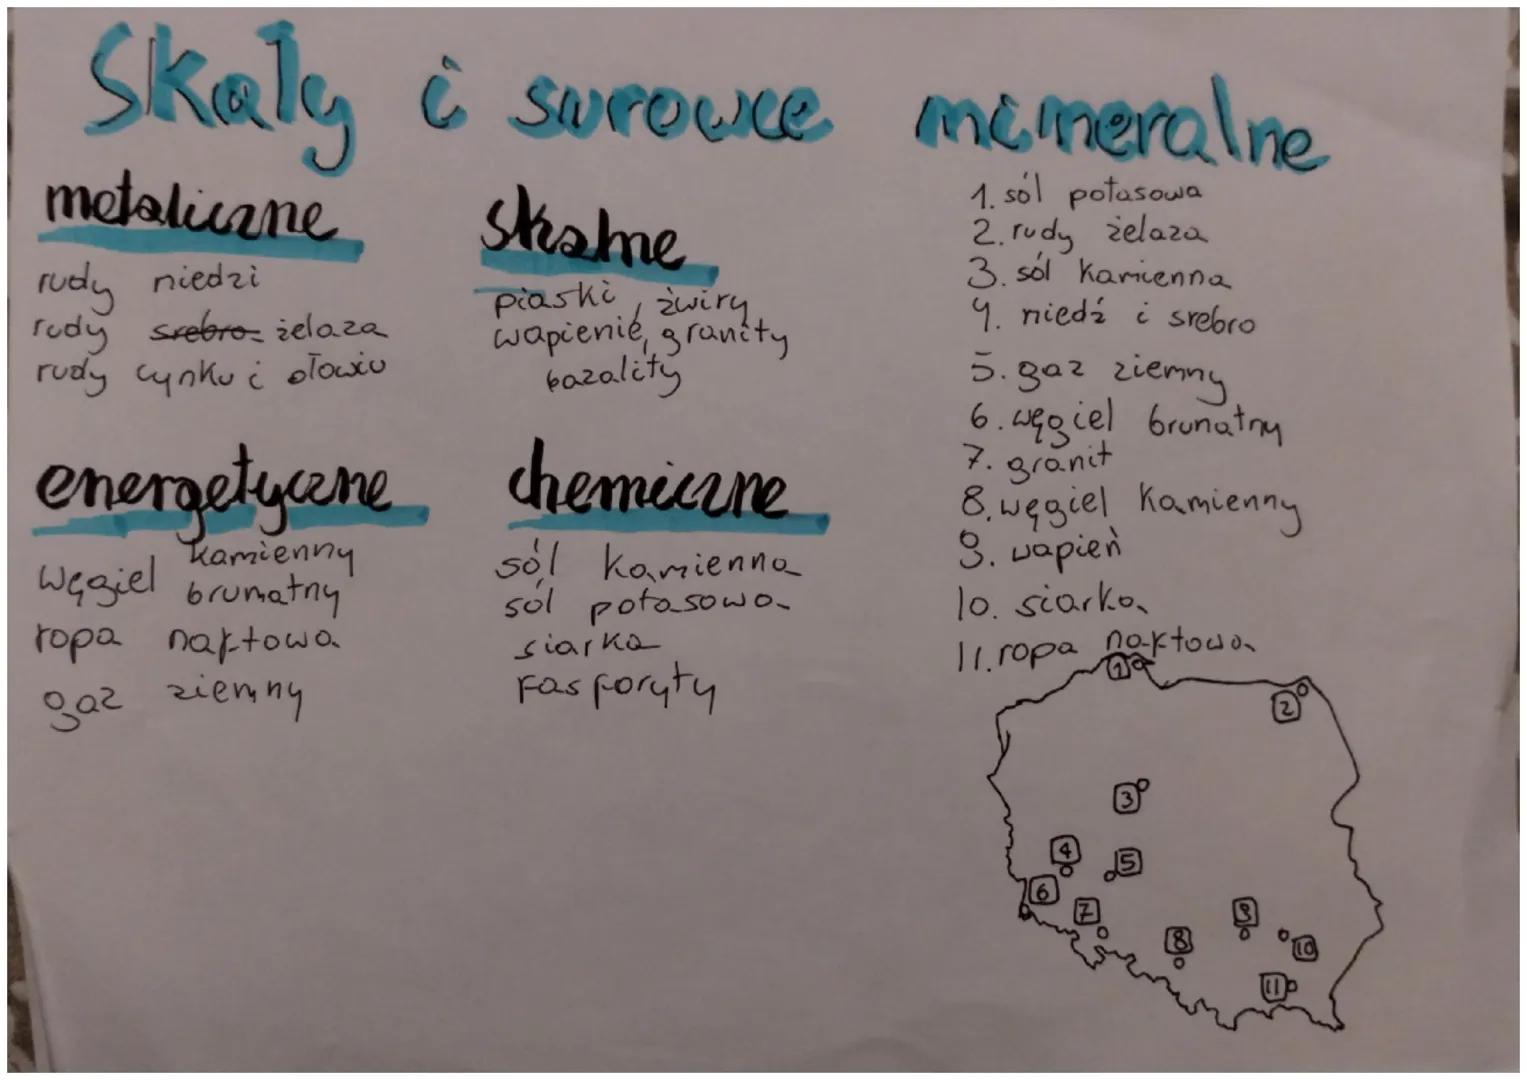 Skały i surowce mineralne
metaliczne
rudy niedzi
rudy srebro żelaza
rudy cynku i ołowiu
skalne
piaski, żwiry
wapienie, granity
bazality
energetyczne
węgiel kamienny
brunatny
ropa naftowa
gaz ziemny
chemiczne
sól kamienna
sól potasowa
siarka
fasforyty
1. sól potasowa
2. rudy żelaza
3. sól kamienna
4. niedź i srebro
5. gaz ziemny
6. węgiel brunatny
7. granit
8. węgiel kamienny
9. wapień
10. siarka
11. ropa naftowa
1
2
3
4
5
6
7
8
9
10
11